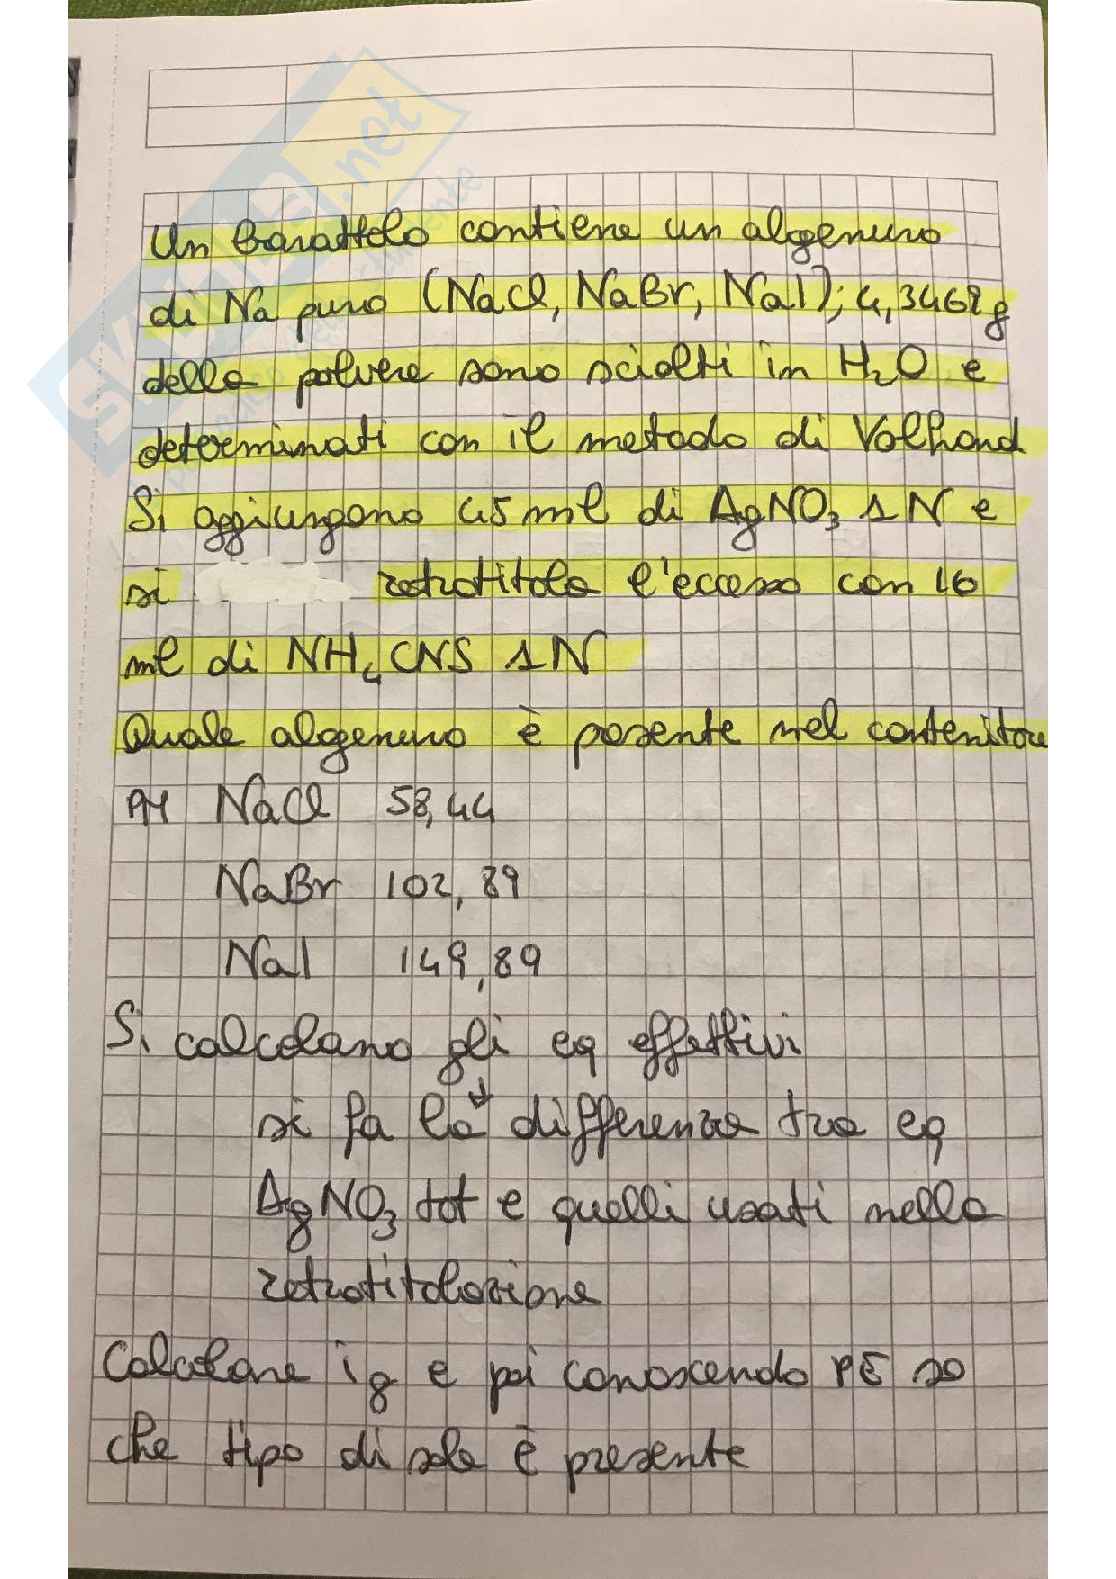 Un barattolo contiene un alogenuro
di Na puro (NaCl, NaBr, NaI); 4,3468 g
della polvere sono sciolti in H2O e
determinati con il metodo di Volhard
Si aggiungono 45 ml di AgNO3 1N e
si retrotitola l'eccesso con 16
ml di NH4CNS 1N
Quale alogenuro è presente nel contenitore
PM NaCl 58,44
NaBr 102,89
NaI 149,89
Si calcolano gli eq effettivi
si fa la differenza tra eq
AgNO3 tot e quelli usati nella
retrotitolazione
Calcolare i g e poi conoscendo PE so
che tipo di sale è presente
.net